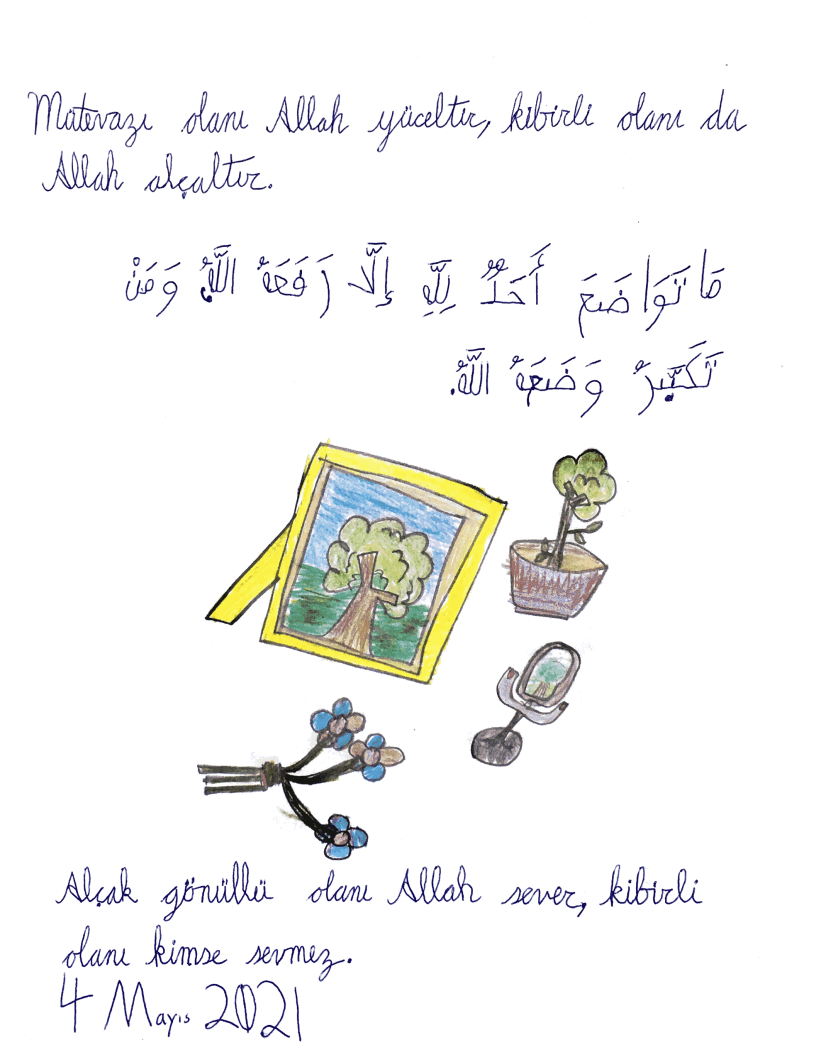 Mütevazı olanı Allah yüceltir, kibirli olanı da
Allah alçaltır.
مَا تَوَاضَعَ أَحَدٌ لِلّٰهِ إِلَّا رَفَعَهُ اللّٰهُ وَمَنْ
تَكَبَّرَ وَضَعَهُ اللّٰهُ.
Alçak gönüllü olanı Allah sever, kibirli
olanı kimse sevmez.
4 Mayıs 2021